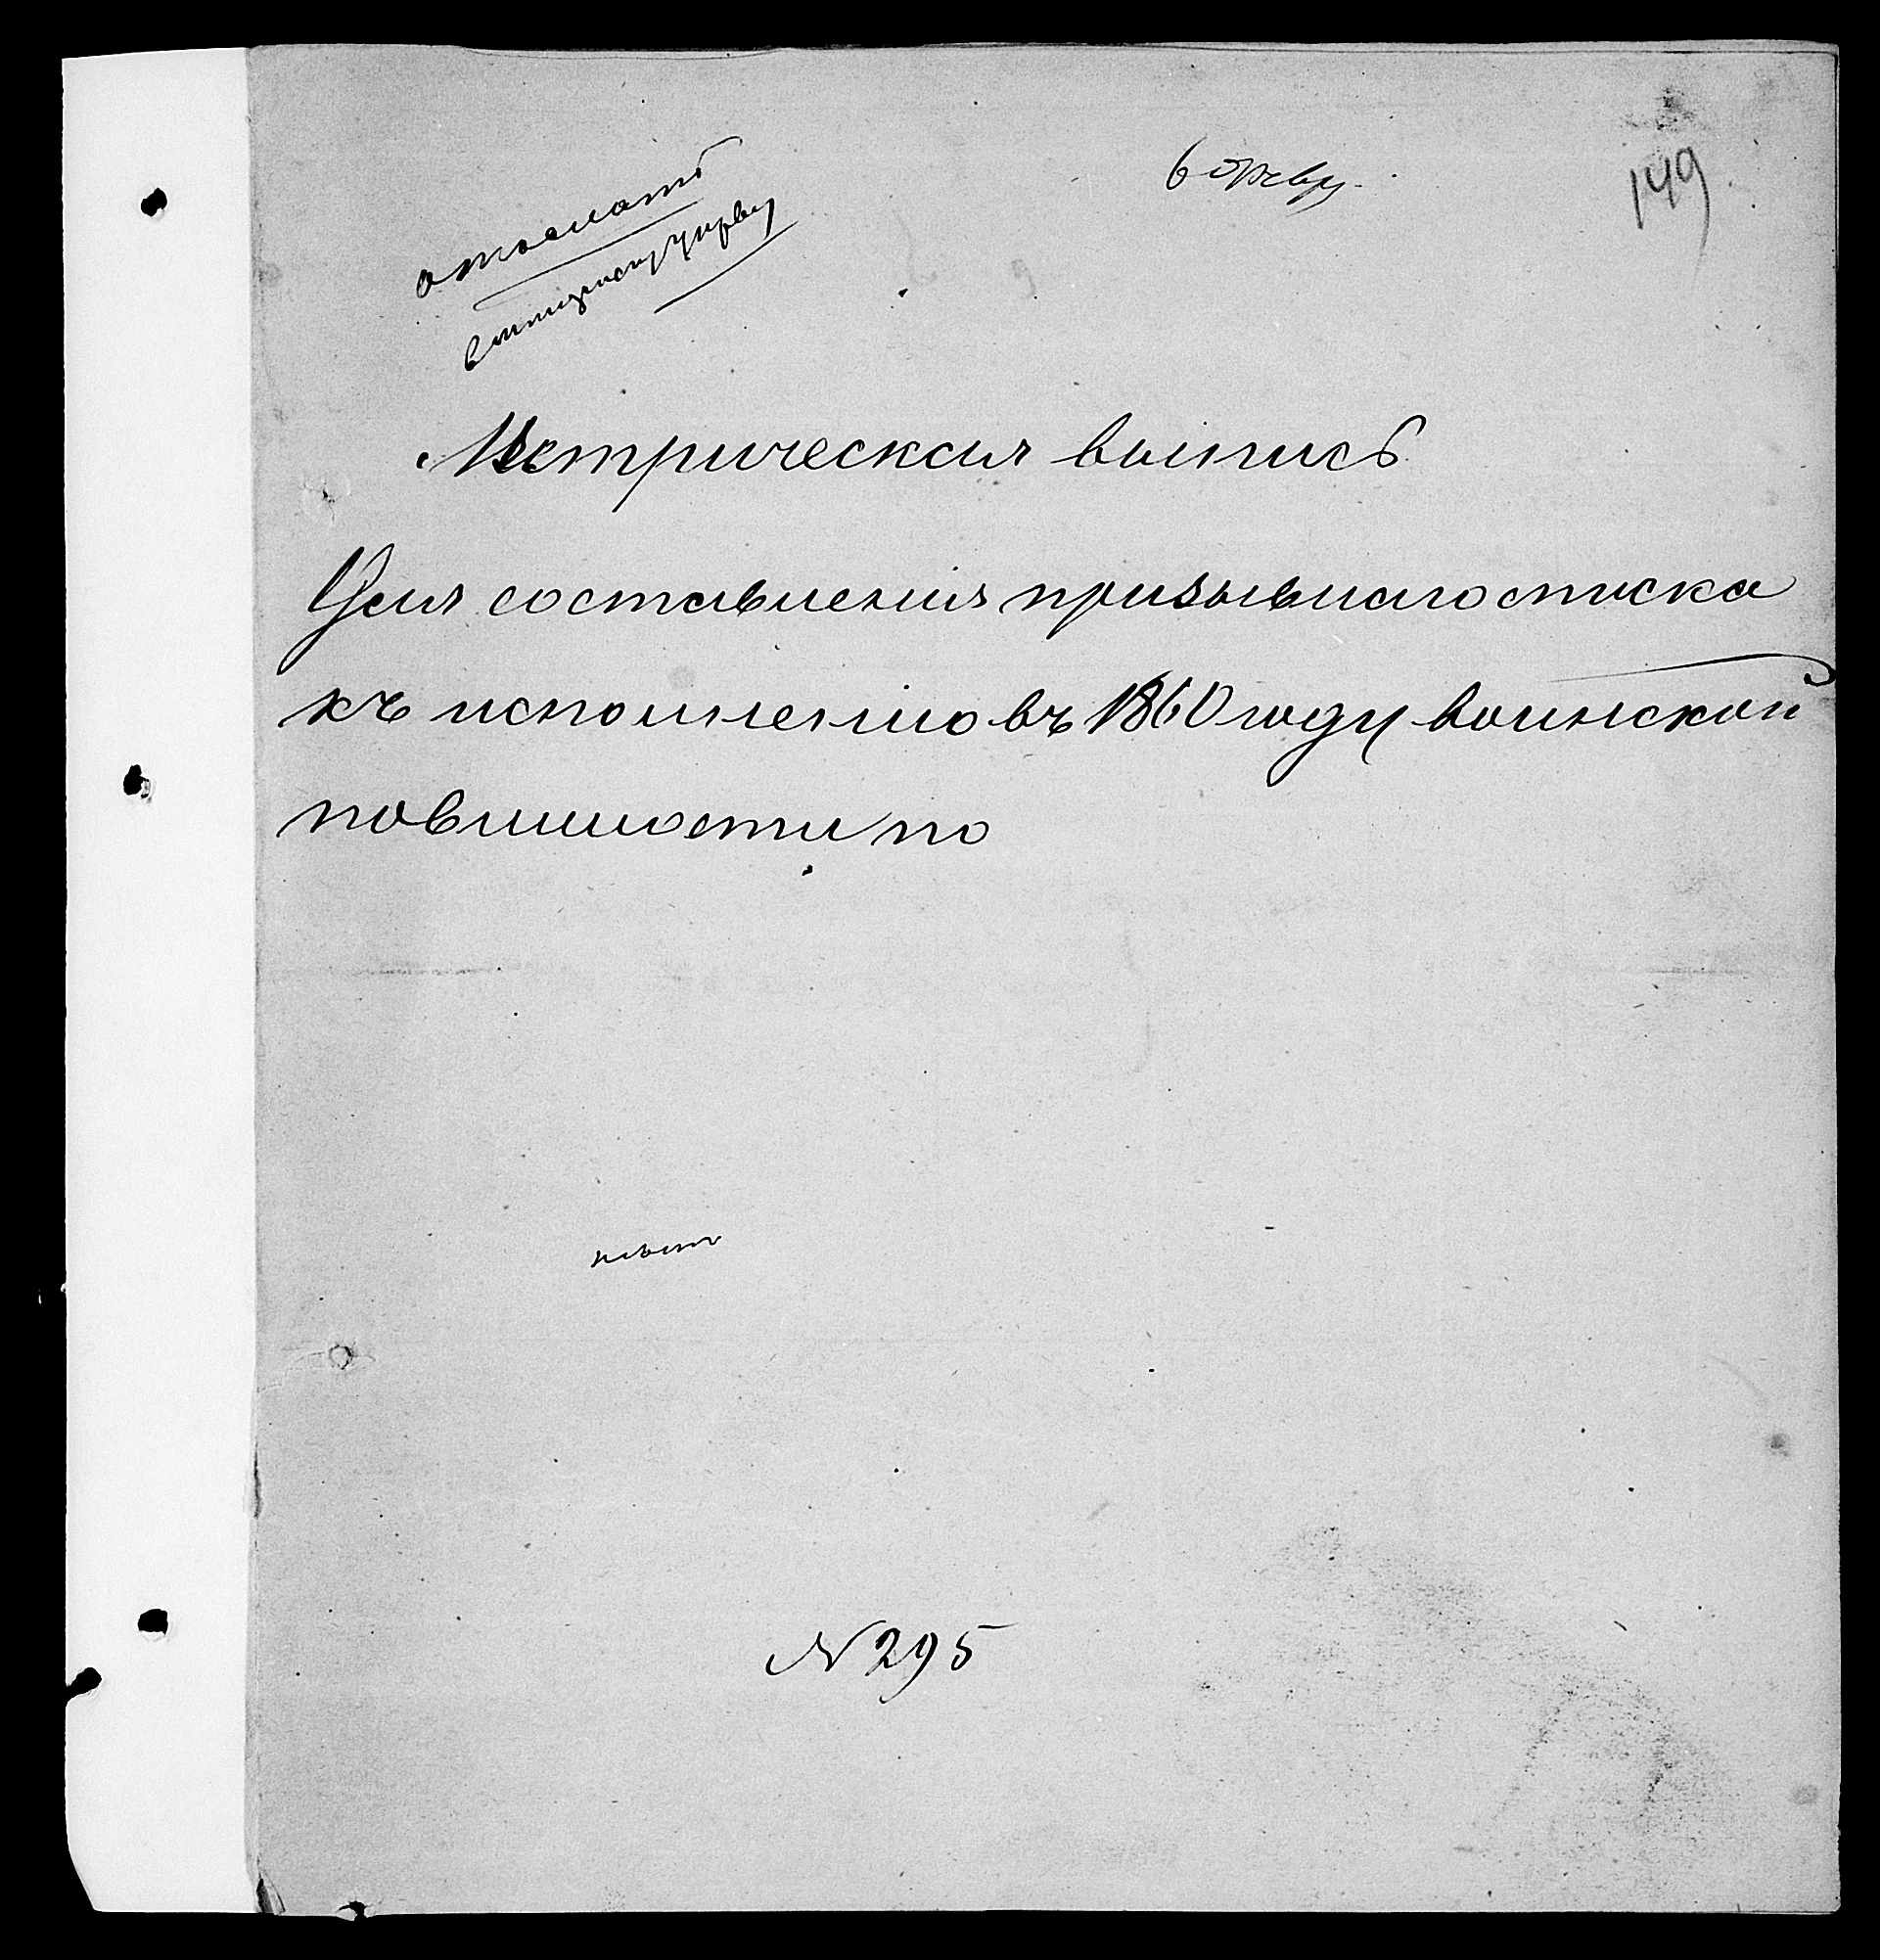 149
отослать
Метрическая выпись
Для составленія призывнаго списка
къ исполненію въ 1860 году воинской
повинности по
N 295